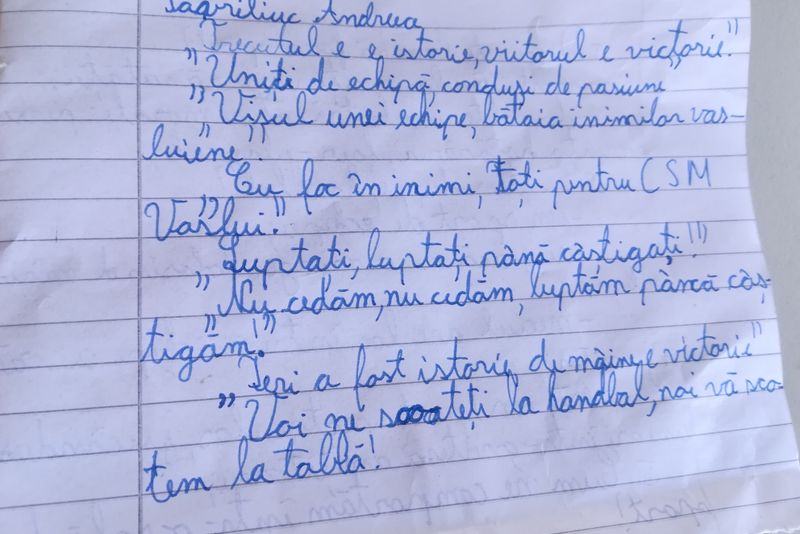 Gavriliuc Andreea
"Trecutul e e istorie, viitorul e victorie."
"Uniți de echipă, conduși de pasiune
"Visul unei echipe, bătaia inimilor vas-
luiene".
"Cu foc în inimi, toți pentru CSM
Vaslui."
"Luptați, luptați până câștigați!"
"Nu cedăm, nu cedăm, luptăm până câș-
tigăm!"
"Ieri a fost istorie, de mâine e victorie"
"Voi ne scoateți la handbal, noi vă sco-
tem la tablă!